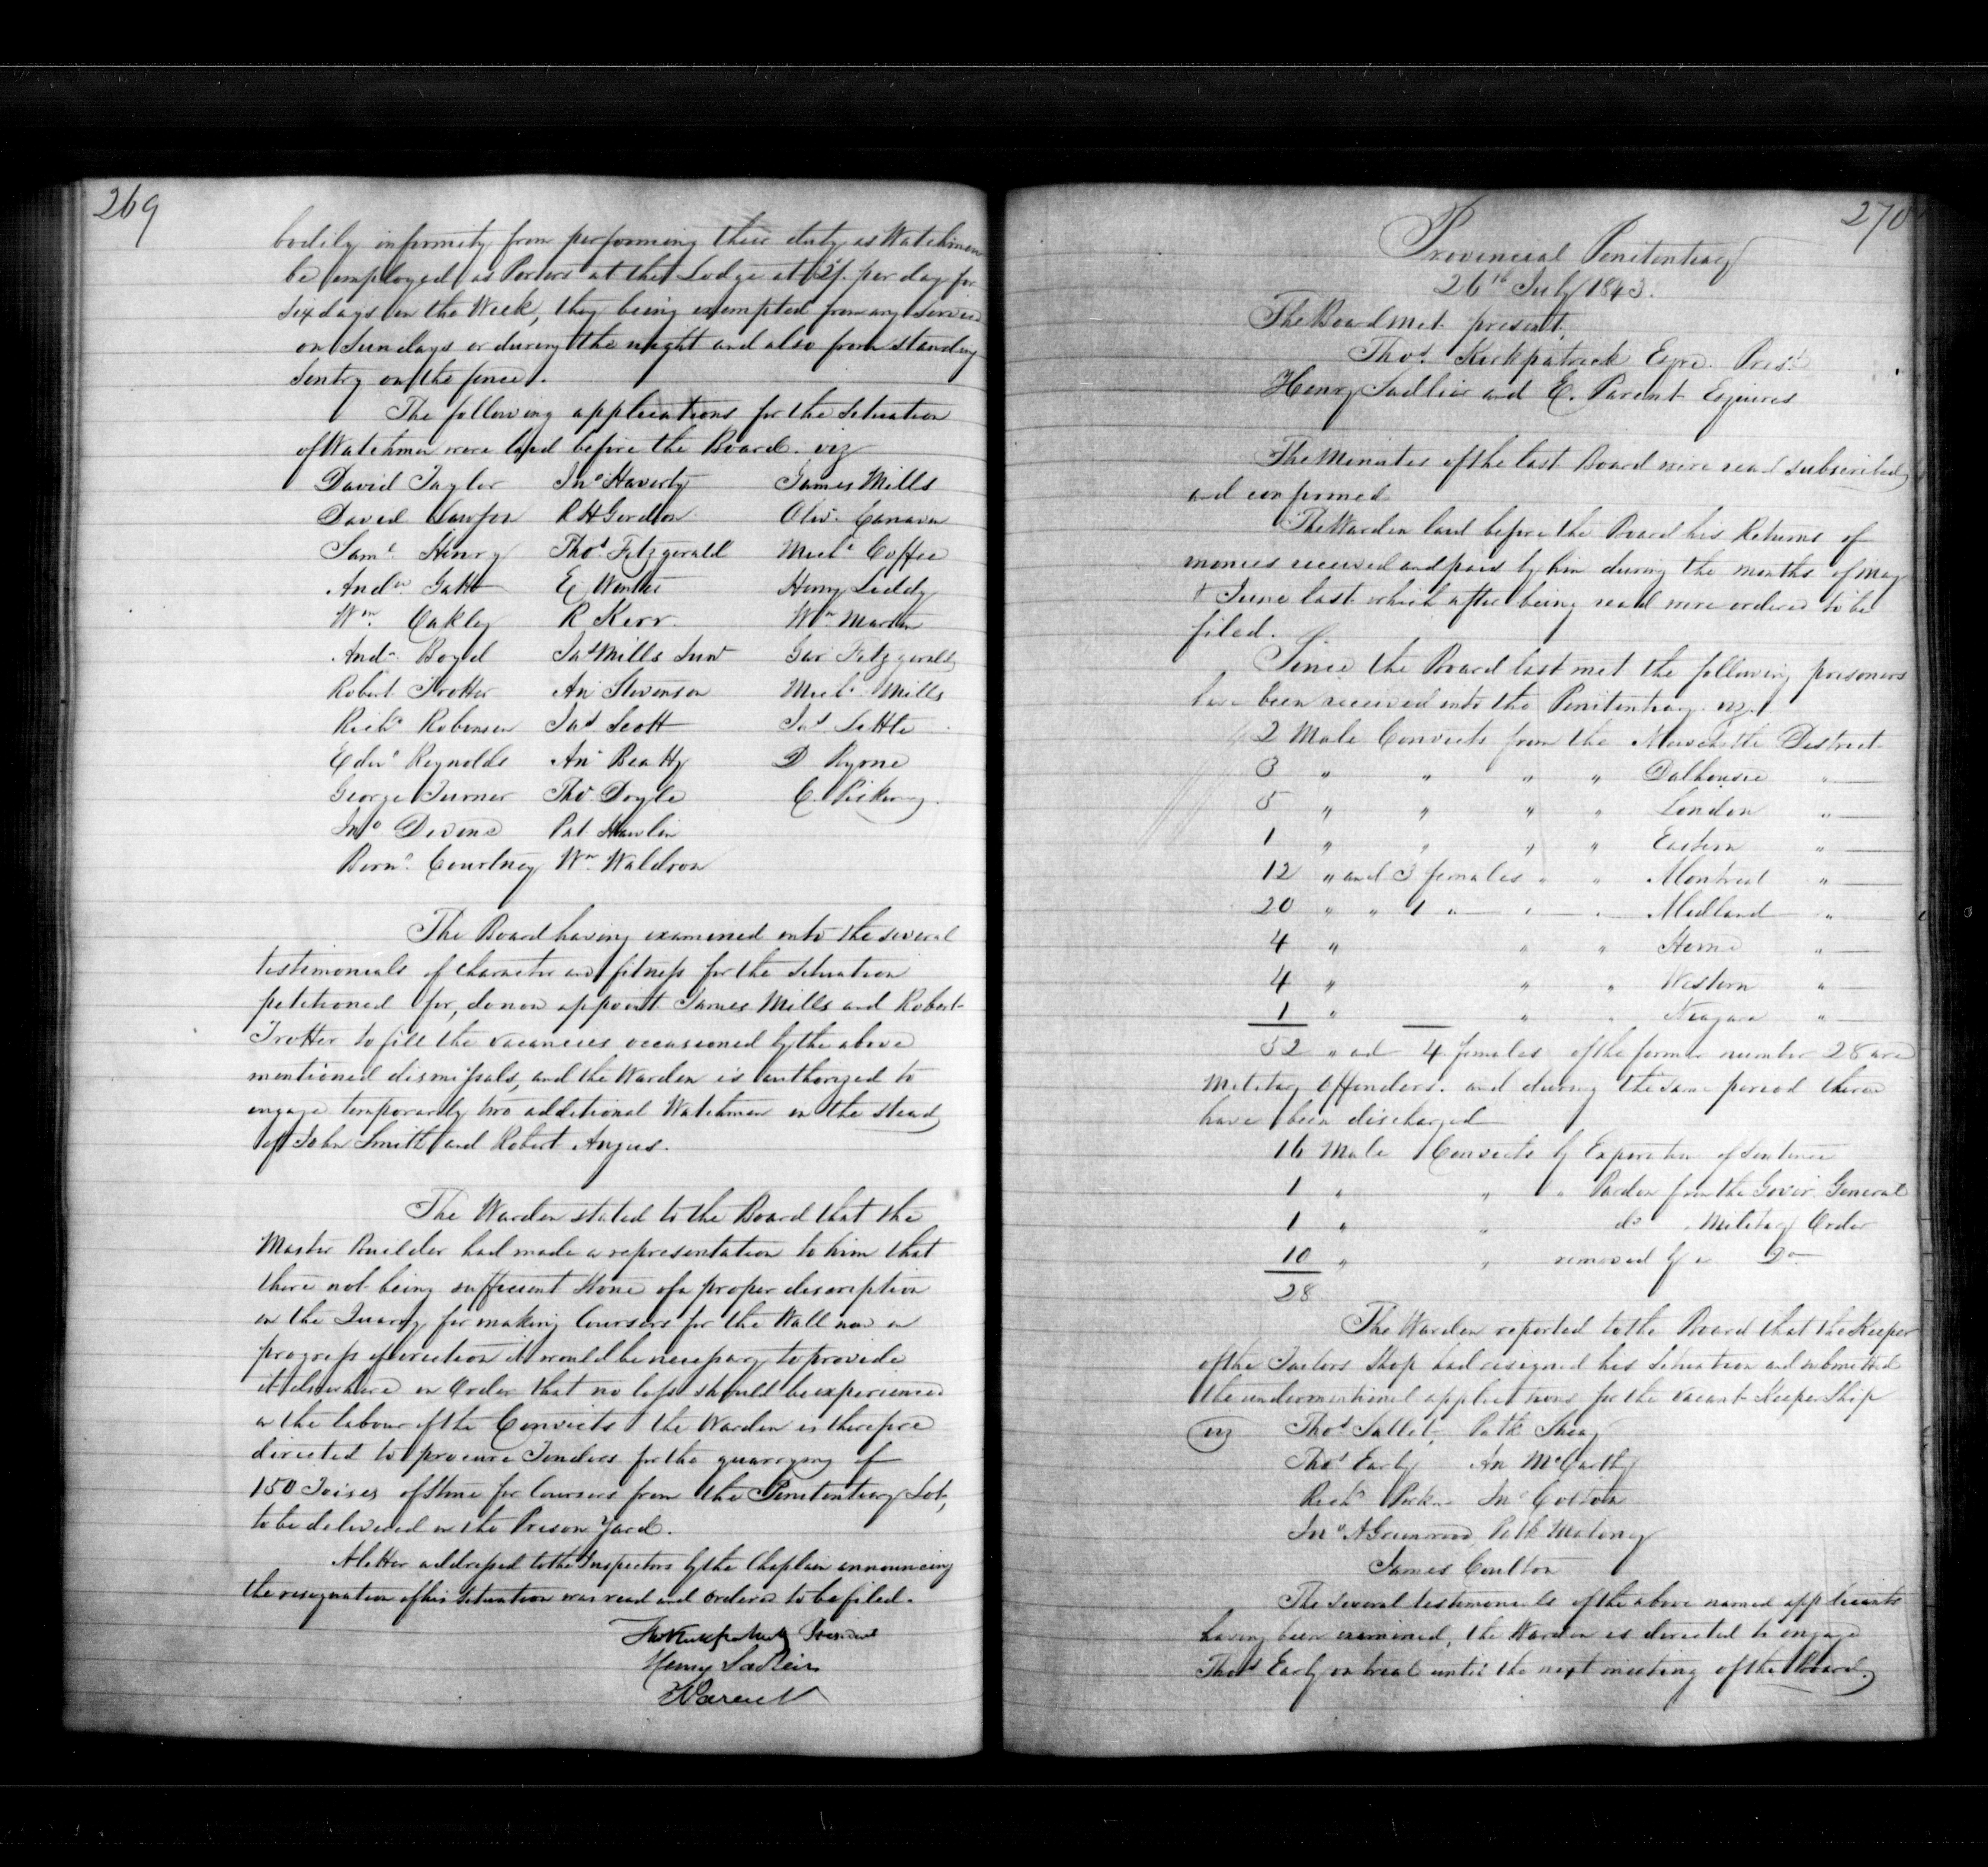 269
bodily infirmity from performing their duty as Watchmen
be employed as Porters at the Lodge at 2/. per day for
six days in the Week, they being exempted from any Service
on Sundays or during the night and also from standing
Sentry on the fence.
The following applications for the Situation
of Watchmen were laid before the Board. viz
David Taylor Jno Haverty James Mills
David Lawson R H Gordon Oliv. Canavan
Saml Henry Thos Fitzgerald Michl Coffee
Andw Gatt E Henry Leddy
Wm. Oakley R Kerr. Wm Martin
Andw Boyd Jas Mills Junr Geo Fitzgerald
Robert Trotter An Stevenson Michl Mills
Richd Robinson Jas Scott Jas Little
Edwd Reynolds An Beatty D Pyone
George Turner Thos Doyle C. Pickering
Jno Devine Pat Hanlin
Bernd Courtney Wm Waldron
The Board having examined into the several
testimonials of character and fitness for the situation
petitioned for, do now appoint James Mills and Robert
Trotter to fill the vacancies occasioned by the above
mentioned dismissals, and the Warden is authorized to
engage temporarily two additional Watchmen in the stead
of John Smith and Robert Angus.
The Warden stated to the Board that the
Master Builder had made a representation to him that
there not being sufficient Stone of a proper description
in the Quarry for making Coursers for the Wall now in
progress of erection it would be necessary to provide
it elsewhere in Order that no loss should be experienced
in the labour of the Convicts the Warden is therefore
directed to procure Tenders for the quarrying of
150 Toises of Stone for Coursers from the Penitentiary Lot,
to be delivered in the Prison Yard.
A letter addressed to the Inspectors by the Chaplain announcing
the resignation of his Situation was read and ordered to be filed.
Thos Kirkpatrick President
Henry Sadleir
E Parent
270
Provincial Penitentiary
26th July 1843.
The Board met present
Thos. Kirkpatrick Esqre. Prest
Henry Sadlier and E. Parent Esquires
The Minutes of the last Board were read subscribed
and confirmed
The Warden laid before the Board his Returns of
monies received and paid by him during the months of May
& June last which after being read were ordered to be
filed.
Since the Board last met the following prisoners
have been received into the Penitentiary viz.
2 Male Convicts from the Newcastle District
3 " " " " Dalhousie "
5 " " " " London "
1 " " " " Eastern "
12 " and 3 females " " Montreal "
20 " " 1 " " " Midland "
4 " " " Home "
4 " " " Western "
1 " " " Niagara "
52 " and 4 females of the former number 28 are
Military Offenders. and during the same period there
have been discharged
16 Male Convicts by Expiration of Sentence
1 " " " Pardon from the Govr. General
1 " " do " Military Order
10 " " removed by a Do
28
The Warden reported to the Board that the Keeper
of the Tailors Shop had resigned his Situation and submitted
the undermentioned applications for the vacant Keeper Ship
viz Thos Sallet, Patk Sheay
Thos Early An McCarthy
Richd Jno Cotton
Jno A Greenwood, Patk Malony
James Coulton
The several testimonials of the above named applicants
having been examined, the Warden is directed to engage
Thos Early on trial until the next meeting of the Board.